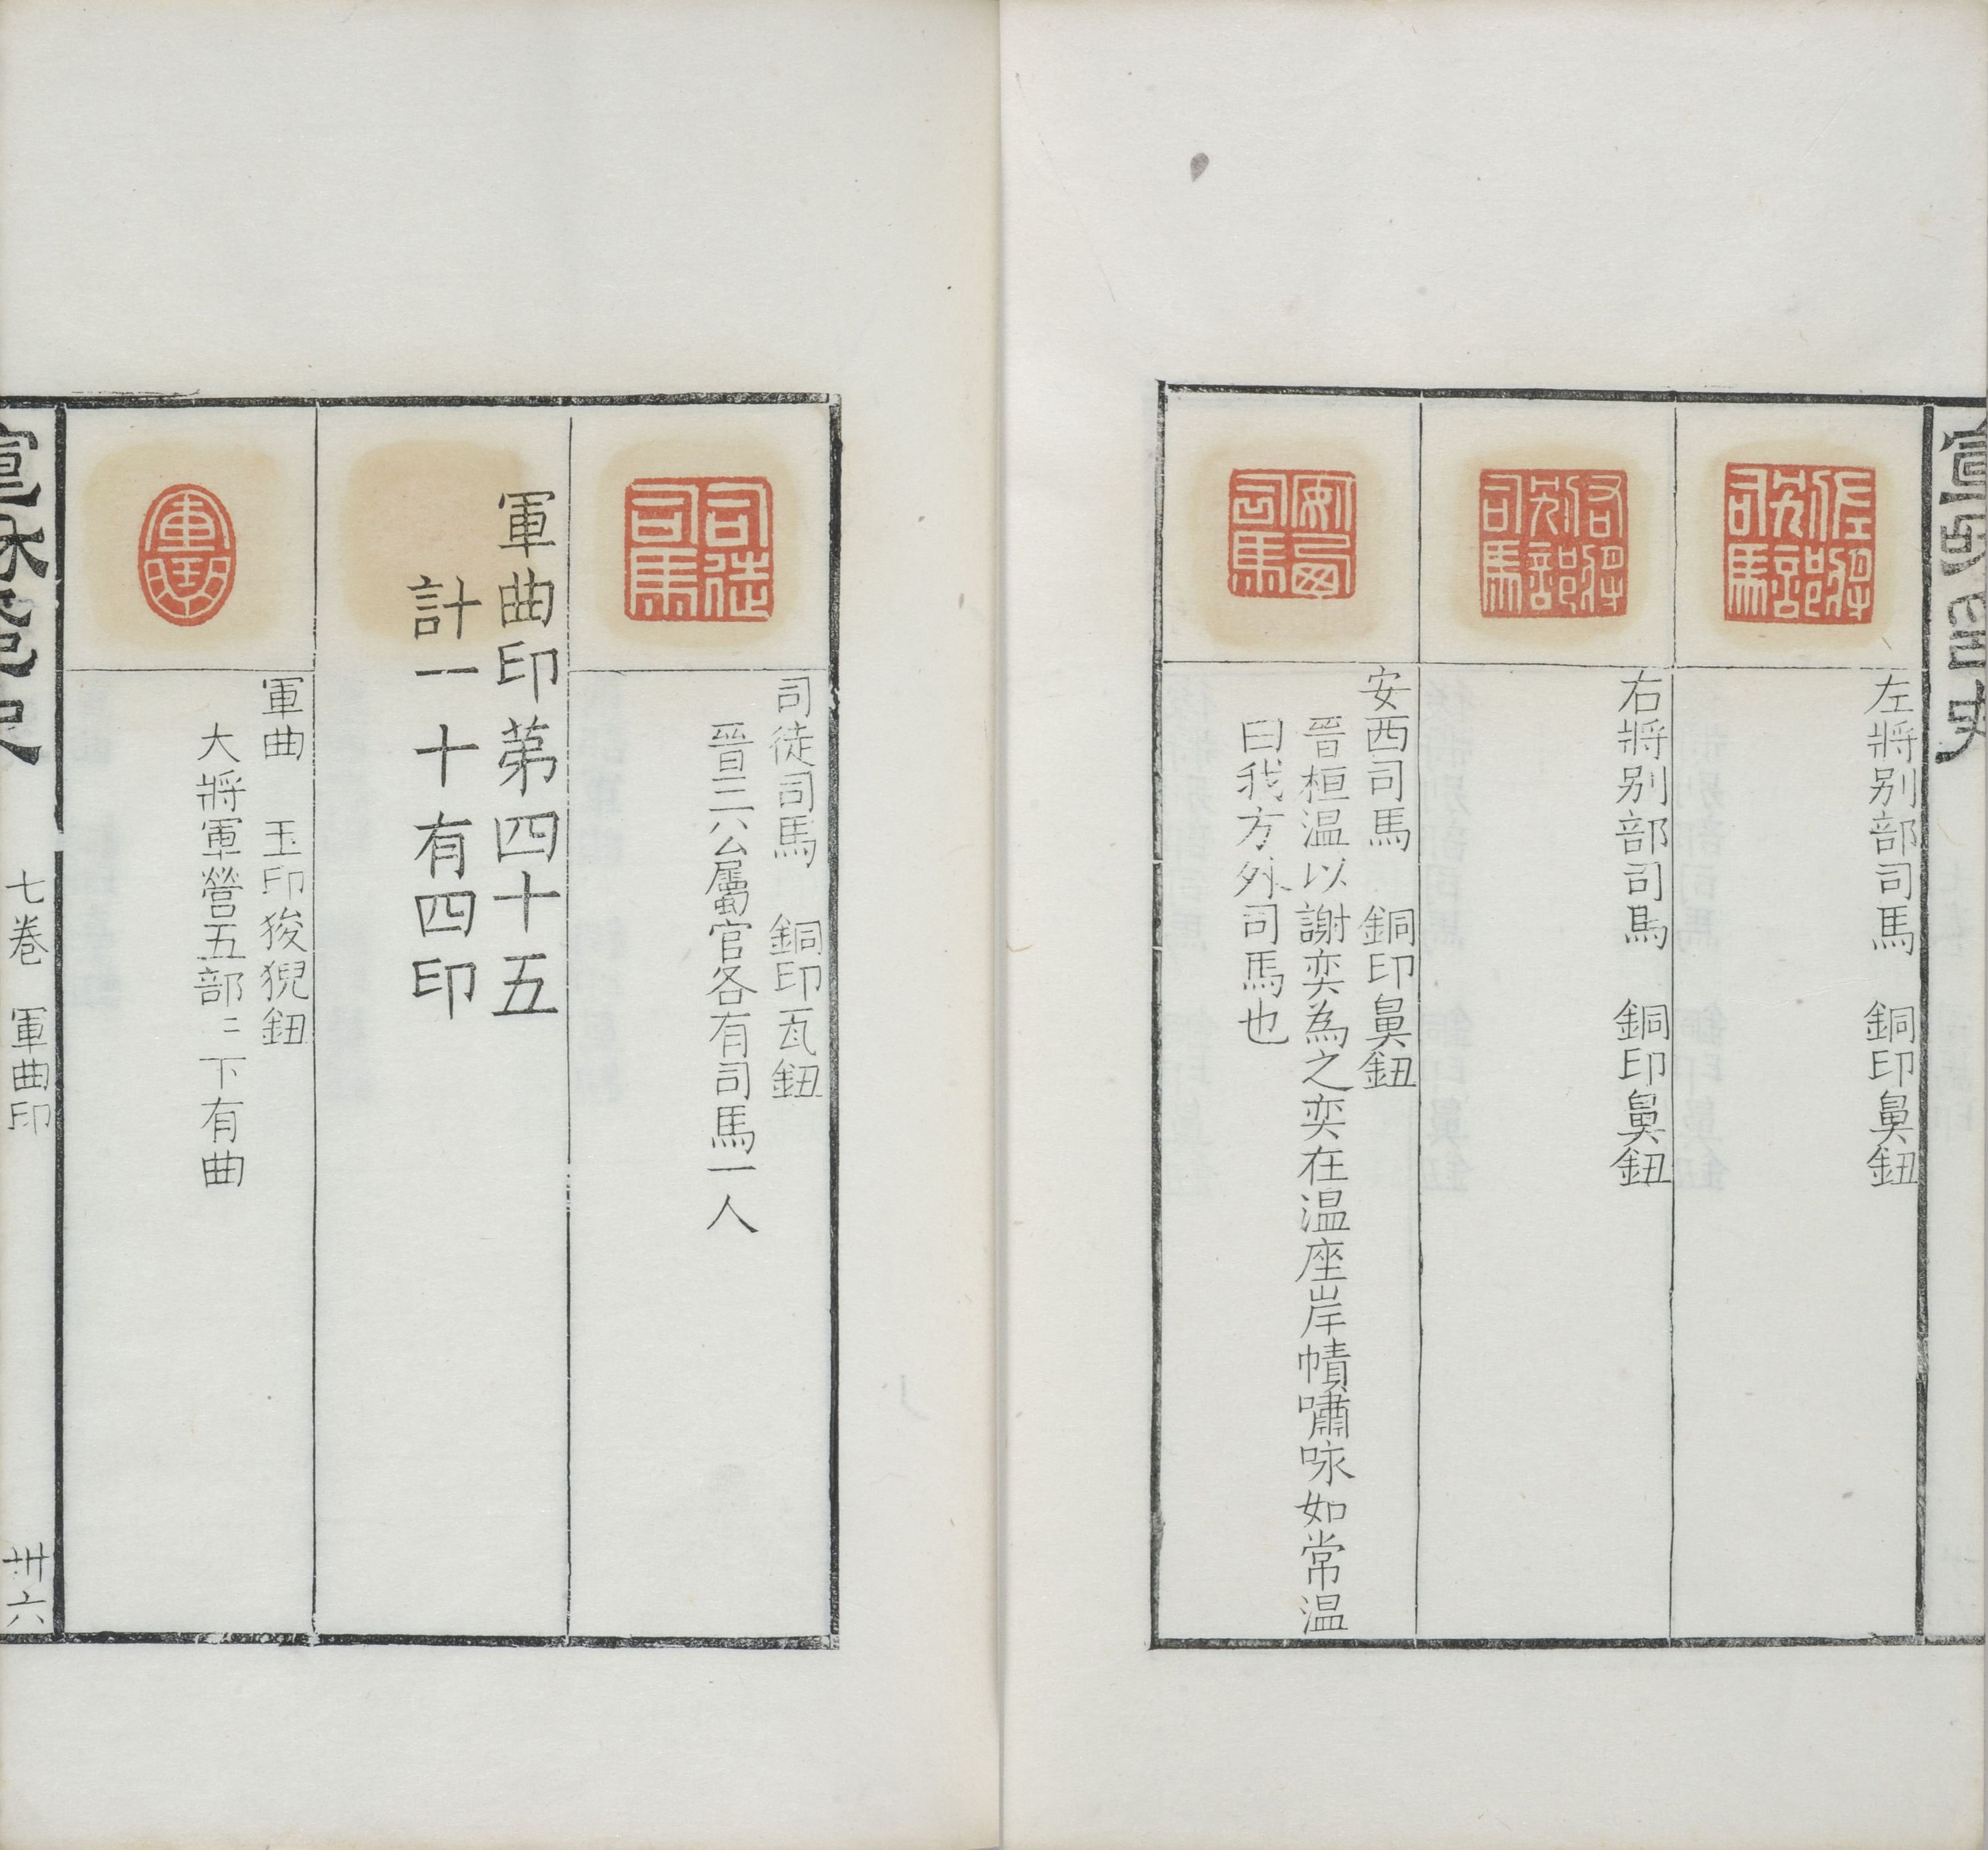 宣和印史
左將別部司馬
左將别部司馬　銅印鼻鈕
右將別部司馬
右將别部司馬　銅印鼻鈕
安西司馬
安西司馬　銅印鼻鈕
晉桓温以謝奕為之奕在温座岸幘嘯咏如常温
曰我方外司馬也
司徒司馬
司徒司馬　銅印瓦鈕
晉三公屬官各有司馬一人
軍曲印第四十五
計一十有四印
軍曲
軍曲　玉印狻猊鈕
大將軍營五部〻下有曲
宣和印史
七卷　軍曲印
卅六